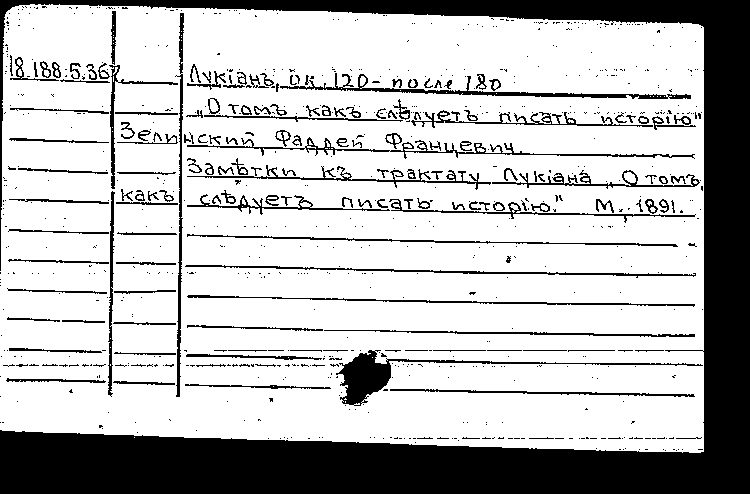 18.188.5.367. Лукіанъ, ок. 120 - после 180
„О томъ, какъ слѣдуетъ писать исторію"
Зелинский, Фаддей Францевич.
Замѣтки къ трактату Лукіана „О томъ,
какъ слѣдуетъ писать исторію." М., 1891.